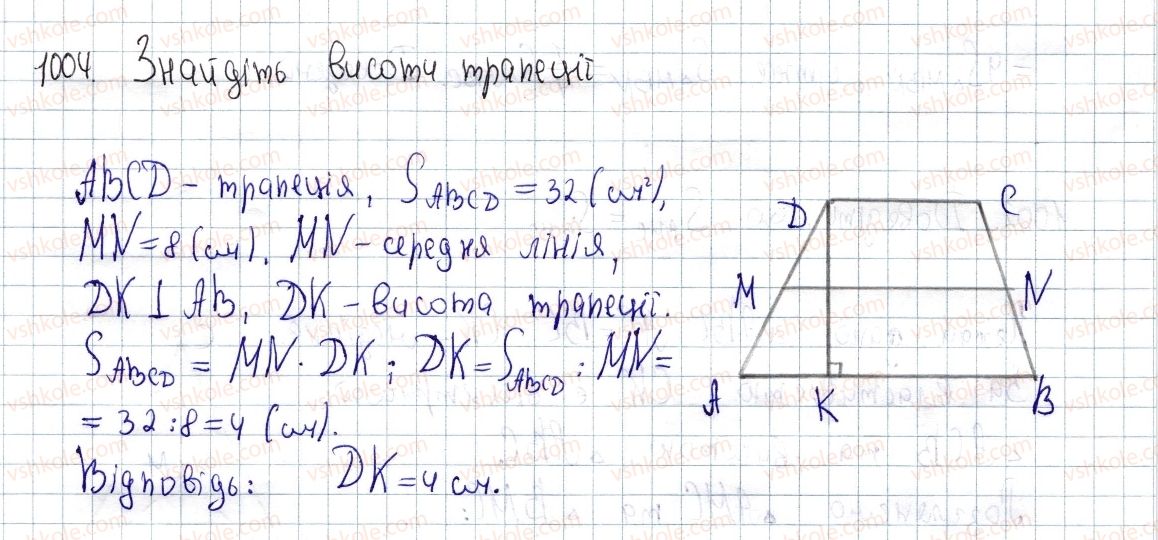 1004. Знайдіть висоти трапеції
ABCD - трапеція, S_ABCD = 32 (см²),
MN = 8 (см), MN - середня лінія,
DK ⊥ AB, DK - висота трапеції.
S_ABCD = MN · DK ; DK = S_ABCD : MN =
= 32 : 8 = 4 (см).
Відповідь: DK = 4 см.
D C
M N
A K B